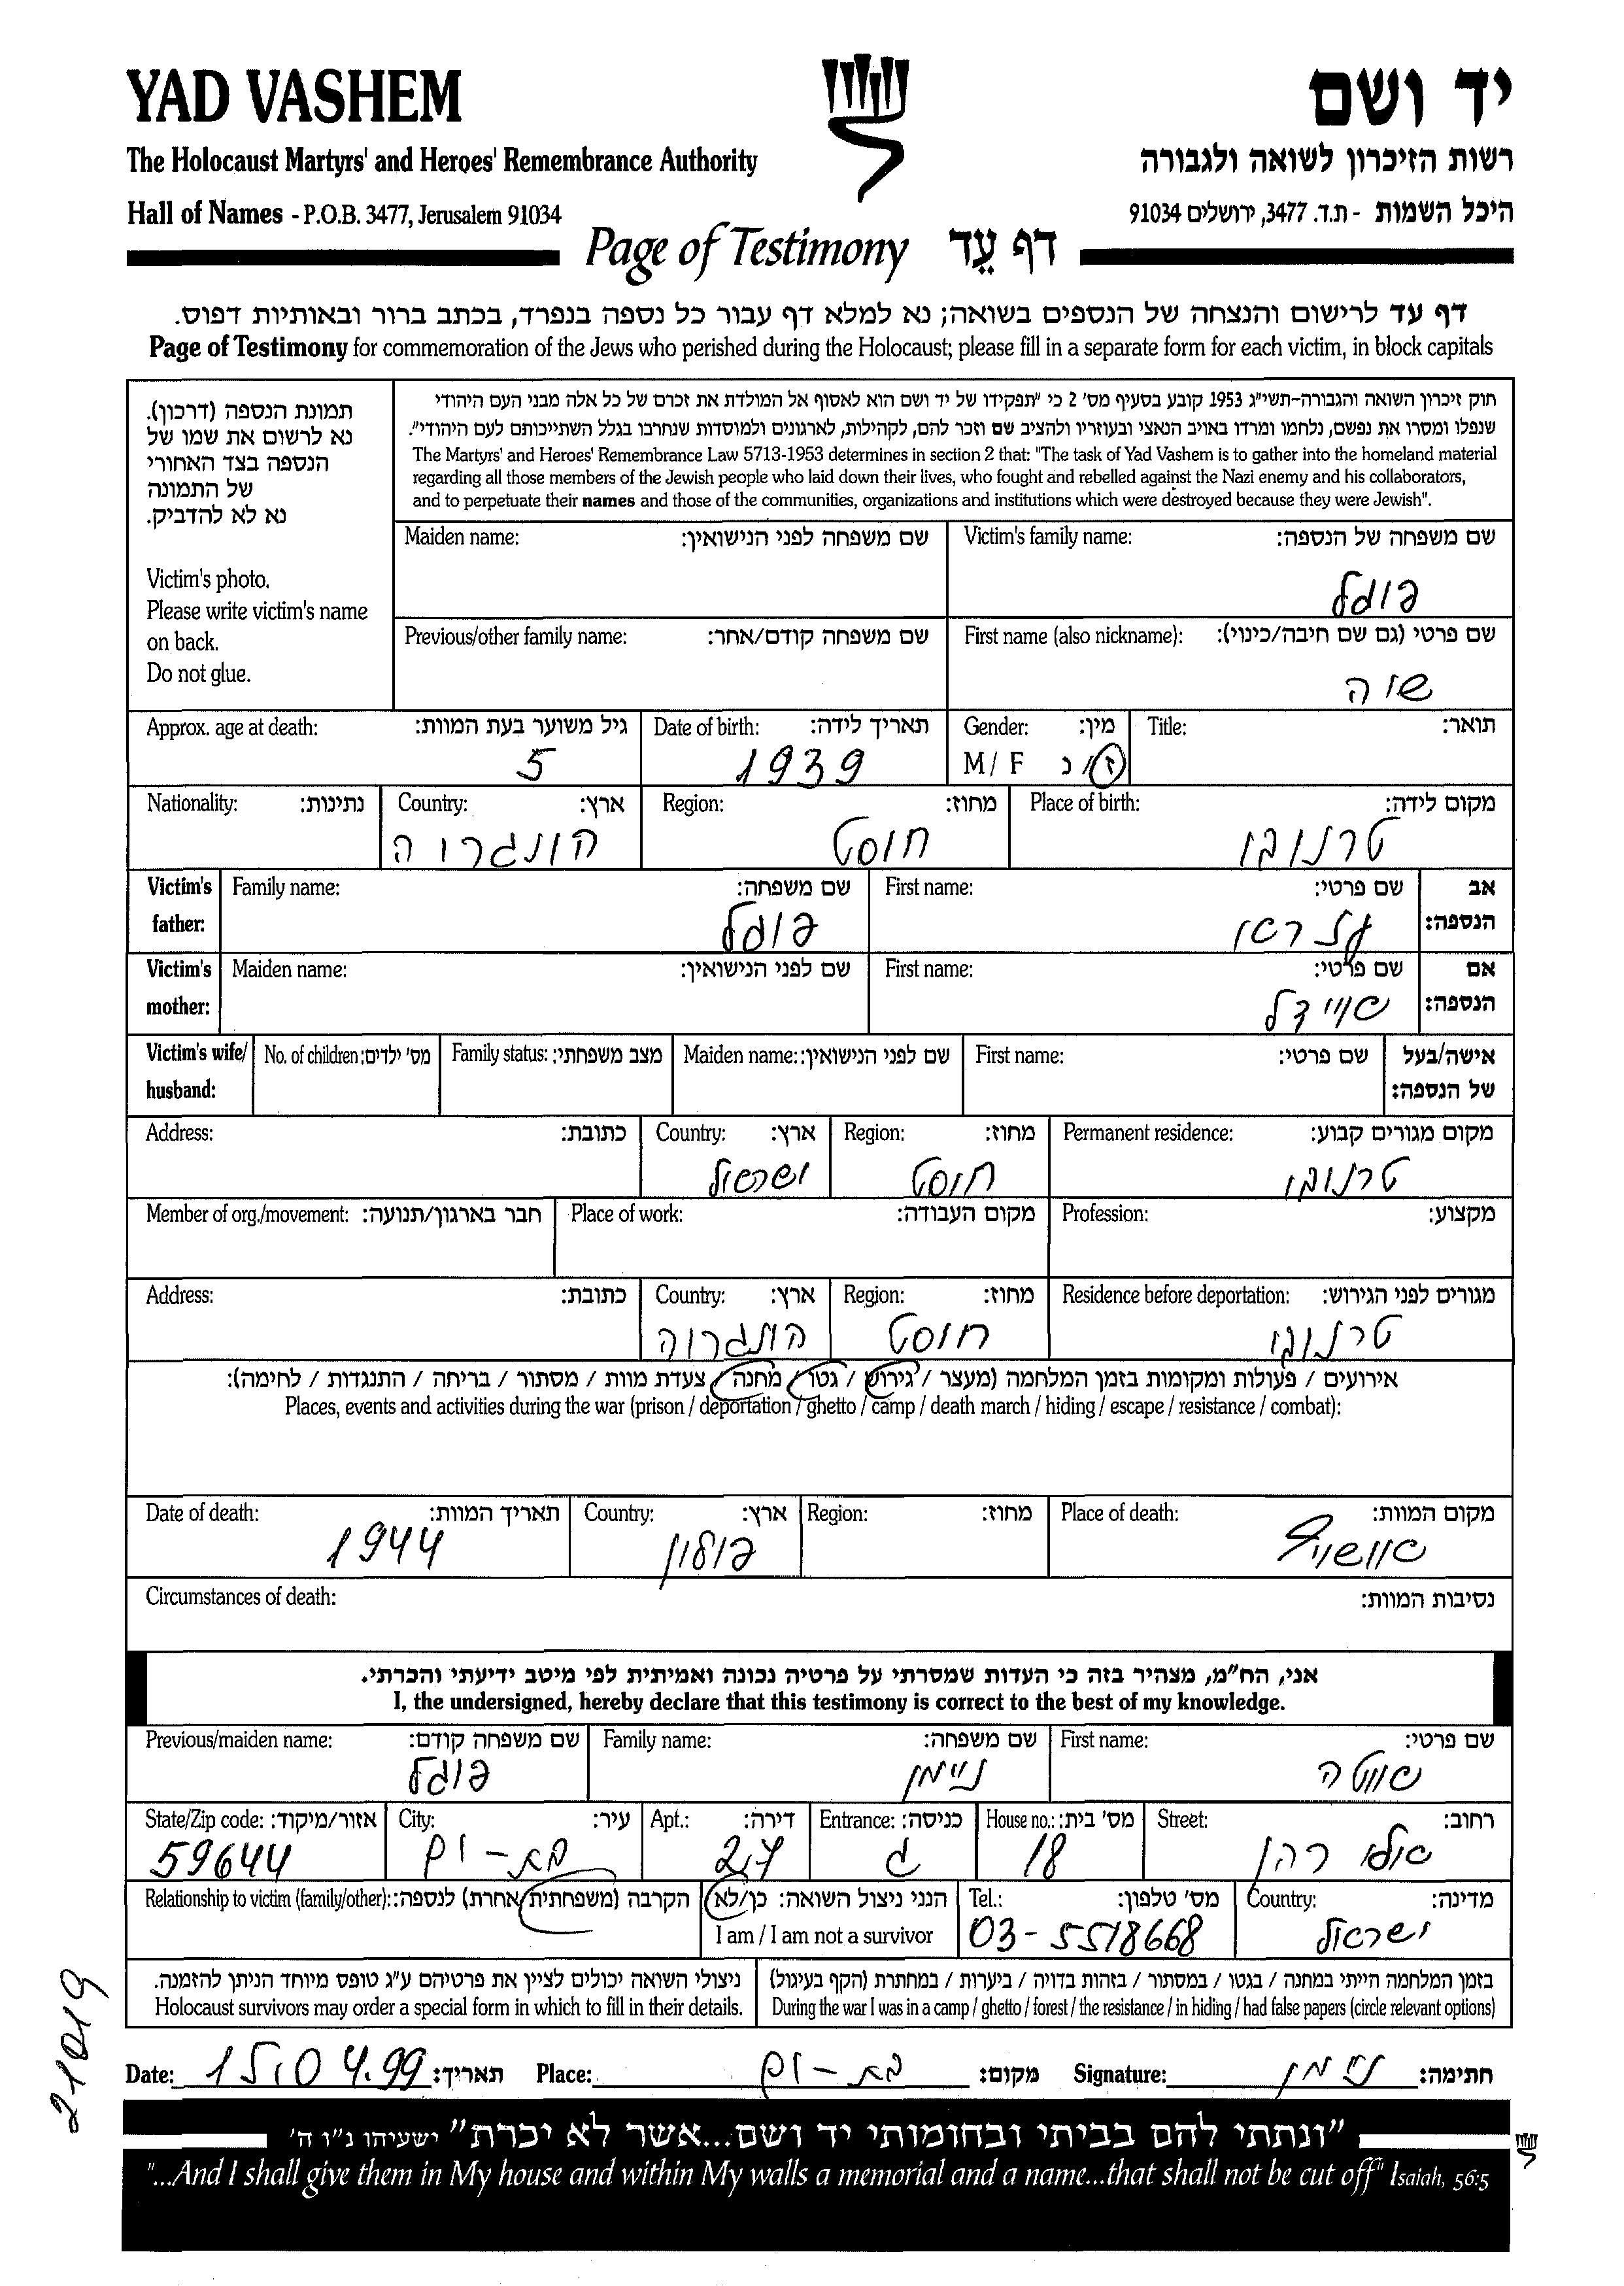 YAD VASHEM יד ושם
The Holocaust Martyrs' and Heroes' Remembrance Authority רשות הזיכרון לשואה ולגבורה
Hall of Names - P.O.B. 3477, Jerusalem 91034 היכל השמות - ת.ד. 3477, ירושלים 91034
Page of Testimony דף עֵד
דף עד לרישום והנצחה של הנספים בשואה; נא למלא דף עבור כל נספה בנפרד, בכתב ברור ובאותיות דפוס.
Page of Testimony for commemoration of the Jews who perished during the Holocaust; please fill in a separate form for each victim, in block capitals
חוק זיכרון השואה והגבורה-תשי"ג 1953 קובע בסעיף מס' 2 כי "תפקידו של יד ושם הוא לאסוף אל המולדת את זכרם של כל אלה מבני העם היהודי
שנפלו ומסרו את נפשם, נלחמו ומרדו באויב הנאצי ובעוזריו ולהציב שם וזכר להם, לקהילות, לארגונים ולמוסדות שנחרבו בגלל השתייכותם לעם היהודי".
The Martyrs' and Heroes' Remembrance Law 5713-1953 determines in section 2 that: "The task of Yad Vashem is to gather into the homeland material
regarding all those members of the Jewish people who laid down their lives, who fought and rebelled against the Nazi enemy and his collaborators,
and to perpetuate their names and those of the communities, organizations and institutions which were destroyed because they were Jewish".
תמונת הנספה (דרכון).
נא לרשום את שמו של
הנספה בצד האחורי
של התמונה
נא לא להדביק.
Victim's photo.
Please write victim's name
on back.
Do not glue.
Victim's family name: שם משפחה של הנספה: Maiden name: שם משפחה לפני הנישואין:
פוגל
First name (also nickname): שם פרטי (גם שם חיבה/כינוי): Previous/other family name: שם משפחה קודם/אחר:
Title: תואר: Gender: מין: Date of birth: תאריך לידה: Approx. age at death: גיל משוער בעת המוות:
M / F ז / נ 1939 5
Place of birth: מקום לידה: Region: מחוז: Country: ארץ: Nationality: נתינות:
טרנובו חוסט הונגרוה
Victim's father: אב הנספה: First name: שם פרטי: Family name: שם משפחה:
פוגל
Victim's mother: אם הנספה: First name: שם פרטי: Maiden name: שם לפני הנישואין:
שיינדל
Victim's wife/ husband: אישה/בעל של הנספה: First name: שם פרטי: Maiden name: שם לפני הנישואין: Family status: מצב משפחתי: No. of children: מס' ילדים:
Permanent residence: מקום מגורים קבוע: Region: מחוז: Country: ארץ: Address: כתובת:
טרנובו חוסט ישראל
Profession: מקצוע: Place of work: מקום העבודה: Member of org./movement: חבר בארגון/תנועה:
Residence before deportation: מגורים לפני הגירוש: Region: מחוז: Country: ארץ: Address: כתובת:
טרנובו חוסט הונגרוה
אירועים / פעולות ומקומות בזמן המלחמה (מעצר / גירוש / גטו / מחנה / צעדת מוות / מסתור / בריחה / התנגדות / לחימה):
Places, events and activities during the war (prison / deportation / ghetto / camp / death march / hiding / escape / resistance / combat):
Place of death: מקום המוות: Region: מחוז: Country: ארץ: Date of death: תאריך המוות:
אושוויץ פולון 1944
Circumstances of death: נסיבות המוות:
אני, הח"מ, מצהיר בזה כי העדות שמסרתי על פרטיה נכונה ואמיתית לפי מיטב ידיעתי והכרתי.
I, the undersigned, hereby declare that this testimony is correct to the best of my knowledge.
First name: שם פרטי: Family name: שם משפחה: Previous/maiden name: שם משפחה קודם:
ניימן פוגל
Street: רחוב: House no.: מס' בית: Entrance: כניסה: Apt.: דירה: City: עיר: State/Zip code: אזור/מיקוד:
18 ג בת-ים 59644
Country: מדינה: Tel.: מס' טלפון: הנני ניצול השואה: כן/לא Relationship to victim (family/other): הקרבה (משפחתית/אחרת) לנספה:
ישראל 03-5518668 I am / I am not a survivor
בזמן המלחמה הייתי במחנה / בגטו / במסתור / בזהות בדויה / ביערות / במחתרת (הקף בעיגול)
During the war I was in a camp / ghetto / forest / the resistance / in hiding / had false papers (circle relevant options)
ניצולי השואה יכולים לציין את פרטיהם ע"ג טופס מיוחד הניתן להזמנה.
Holocaust survivors may order a special form in which to fill in their details.
Date: 15.04.99 תאריך: Place: בת-ים מקום: Signature: ניימן חתימה:
21019
"ונתתי להם בביתי ובחומותי יד ושם...אשר לא יכרת" ישעיהו נ"ו ה'
"...And I shall give them in My house and within My walls a memorial and a name...that shall not be cut off" Isaiah, 56:5